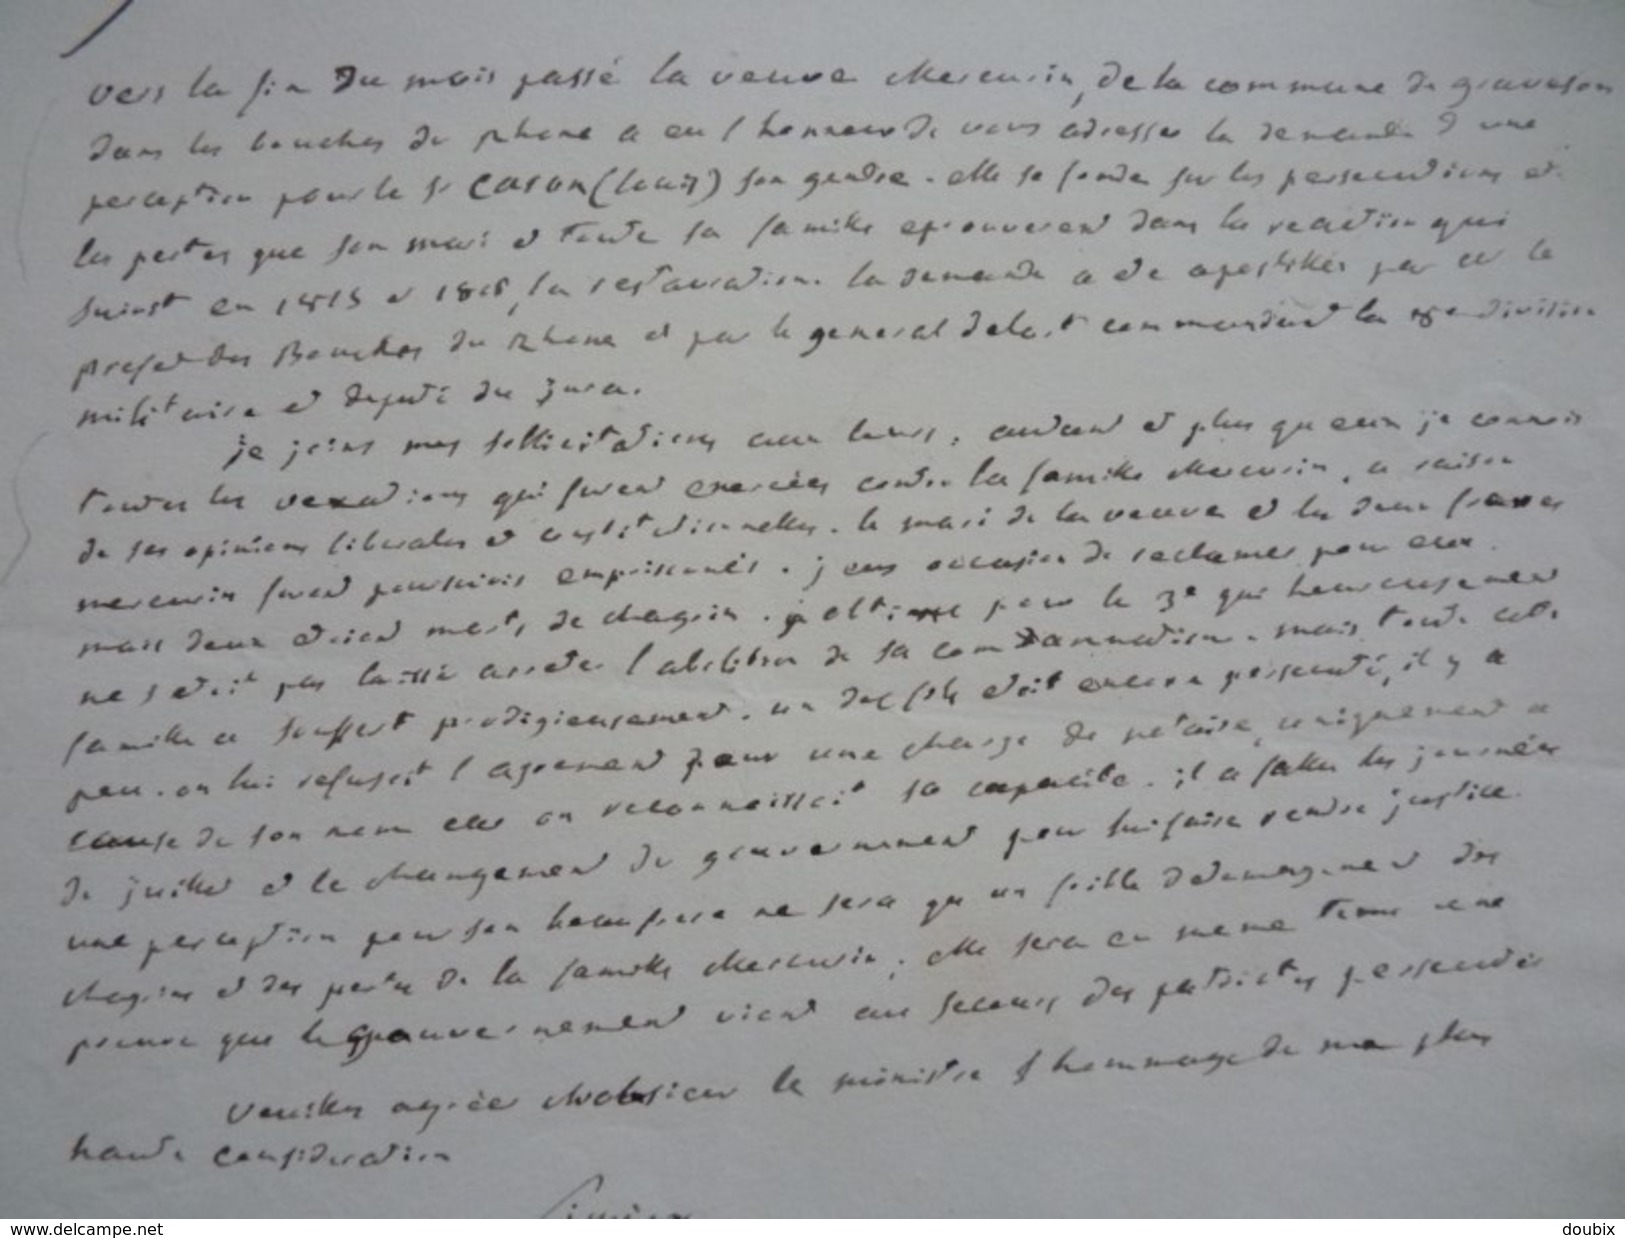 vers la fin du mois passé la veuve Mercurin, de la commune de graveson
dans les bouches du rhone a eu l honneur de vous adresser la demande d une
perception pour le sr CASON (louis) son gendre. elle se fonde sur les persecutions et
les pertes que son mari et toute sa famille eprouverent dans la reaction qui
suivit en 1815 et 1816, la restauration. la demande a ete apostillée par le
prefet des Bouches du Rhone et par le general delort commandant la 8e division
militaire et deputé du jura.
je joins mes sollicitations aux leurs, autant et plus qu eux je connois
toutes les vexations qui furent exercées contre la famille Mercurin, a raison
de ses opinions liberales et constitutionnelles. le mari de la veuve et les deux freres
mercurin furent poursuivis emprisonnés. j eus occasion de reclamer pour eux.
mais deux etoient morts de chagrin. j obtins pour le 3e qui heureusement
ne s etoit pas laissé arreter l abolition de sa condamnation. mais toute cette
famille a souffert prodigieusement. un des fils etoit encore persecuté, il y a
peu. on lui refusoit l agrement pour une charge de notaire, uniquement a
cause de son nom car on reconnaissoit sa capacite. il a fallu les journées
de juillet et le changement de gouvernement pour lui faire rendre justice.
une perception pour son beaufrere ne sera qu un foible dedommagement des
chagrins et des pertes de la famille Mercurin. elle sera en meme tems une
preuve que le gouvernement vient au secours des patriotes persecutés
Veuillez agréer Monsieur le ministre l hommage de ma plus
haute consideration
www.delcampe.net
doubix